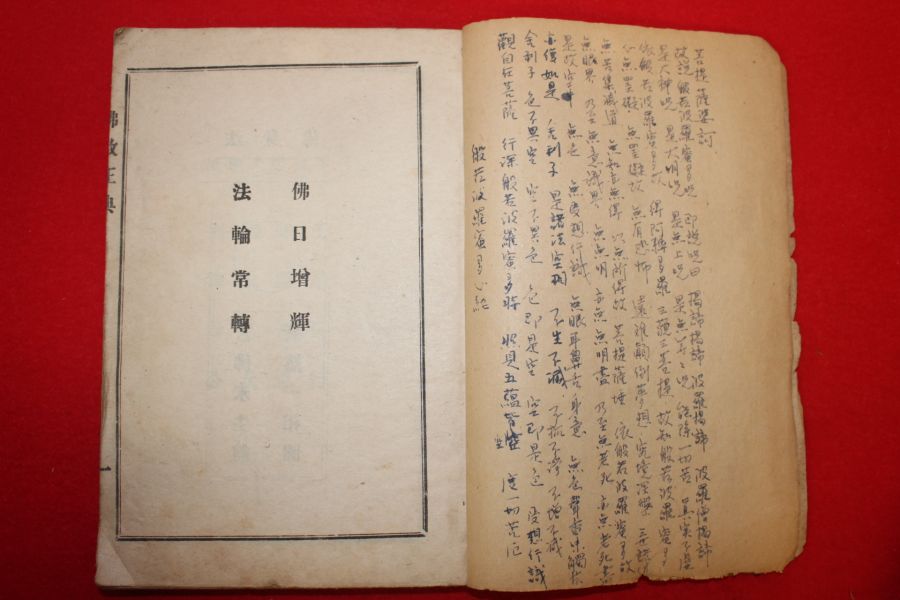 佛日增輝
法輪常轉
佛教正典
一
般若波羅蜜多心經
觀自在菩薩 行深般若波羅蜜多時 照見五蘊皆空 度一切苦厄
舍利子 色不異空 空不異色 色即是空 空即是色 受想行識
亦復如是 舍利子 是諸法空相 不生不滅 不垢不淨 不增不減
是故空中 無色 無受想行識 無眼耳鼻舌身意 無色聲香味觸法
無眼界 乃至無意識界 無無明 亦無無明盡 乃至無老死 亦無老死盡
無苦集滅道 無知亦無得 以無所得故 菩提薩埵 依般若波羅蜜多故
心無罣礙 無罣礙故 無有恐怖 遠離顛倒夢想 究竟涅槃 三世諸
依般若波羅蜜多故 得阿耨多羅三藐三菩提 故知般若波羅蜜多
是大神呪 是大明呪 是無上呪 是無等々呪 能除一切苦 真實不虛
故說般若波羅蜜多呪 即說呪曰 揭諦揭諦 波羅揭諦 波羅僧揭諦
菩提薩婆訶